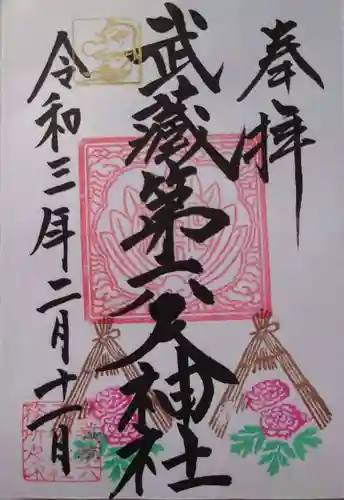 奉拝
武藏第六天神社
令和三年二月十一日